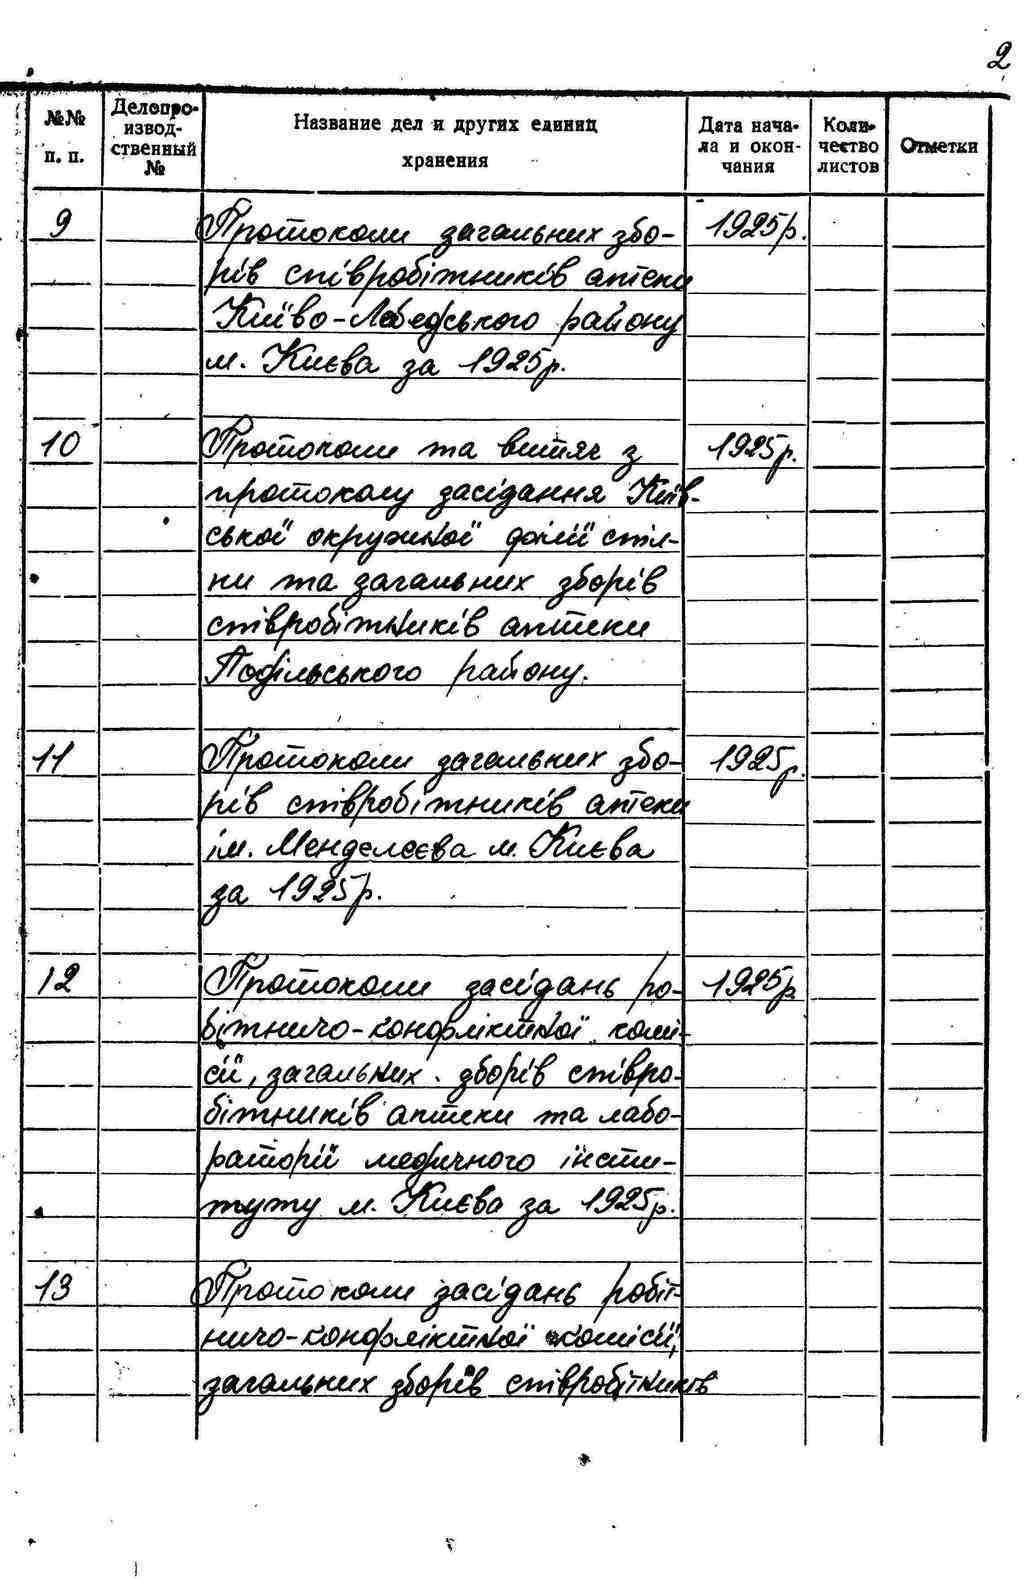 2
№№ п. п. Делопро-изводственный № Название дел и других единиц хранения Дата начала и окончания Количество листов Отметки
9 Протоколи загальних збо- 1925р.
рів співробітників аптеки
Київо-Либедського району
м. Києва за 1925р.
10 Протоколи та витяг з 1925р.
протоколу засідання Київ-
ської окружної філії спіл-
ки та загальних зборів
співробітників аптеки
Подільського району.
11 Протоколи загальних збо- 1925р.
рів співробітників аптеки
ім. Менделєєва м. Києва
за 1925р.
12 Протоколи засідань ро- 1925р.
бітничо-конфліктної комі-
сії, загальних зборів співро-
бітників аптеки та лабо-
раторії медичного інсти-
туту м. Києва за 1925р.
13 Протоколи засідань робіт-
ничо-конфліктної комісії,
загальних зборів співробітників